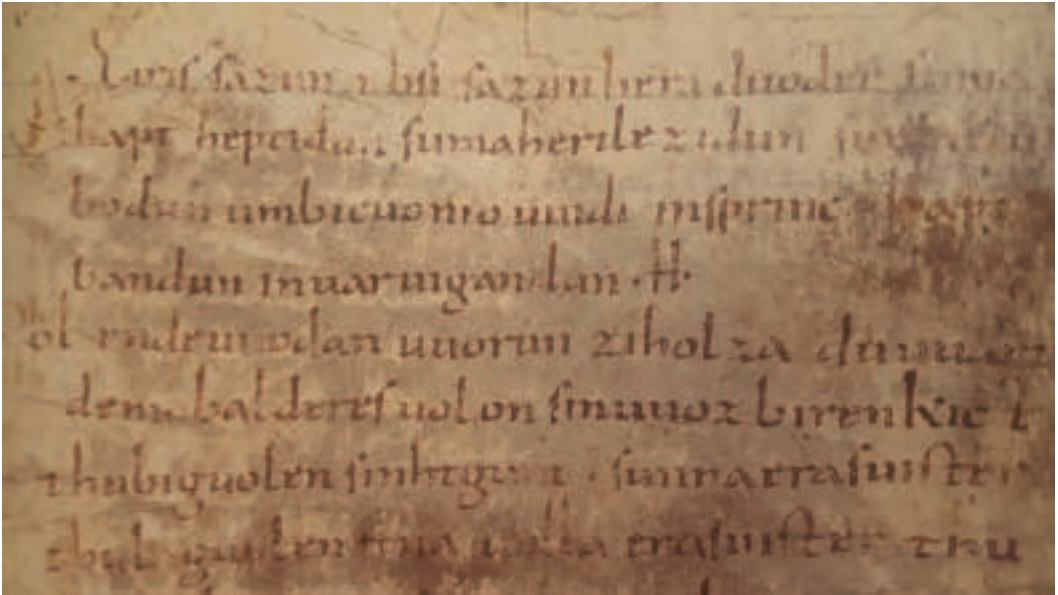 Eiris sazun idisi sazun hera duoder suma
hapt heptidun suma heri lezidun suma
bodun umbicuonio uuidi insprinc hapt
bandun inuar uigandun · H ·
ol ende uuodan uuorun zi holza du uuart
demo balderes uolon sin uuoz birenkict
thubiguolen sinhtgunt · sunna era suister
thubiguolen friia uolla era suister thu